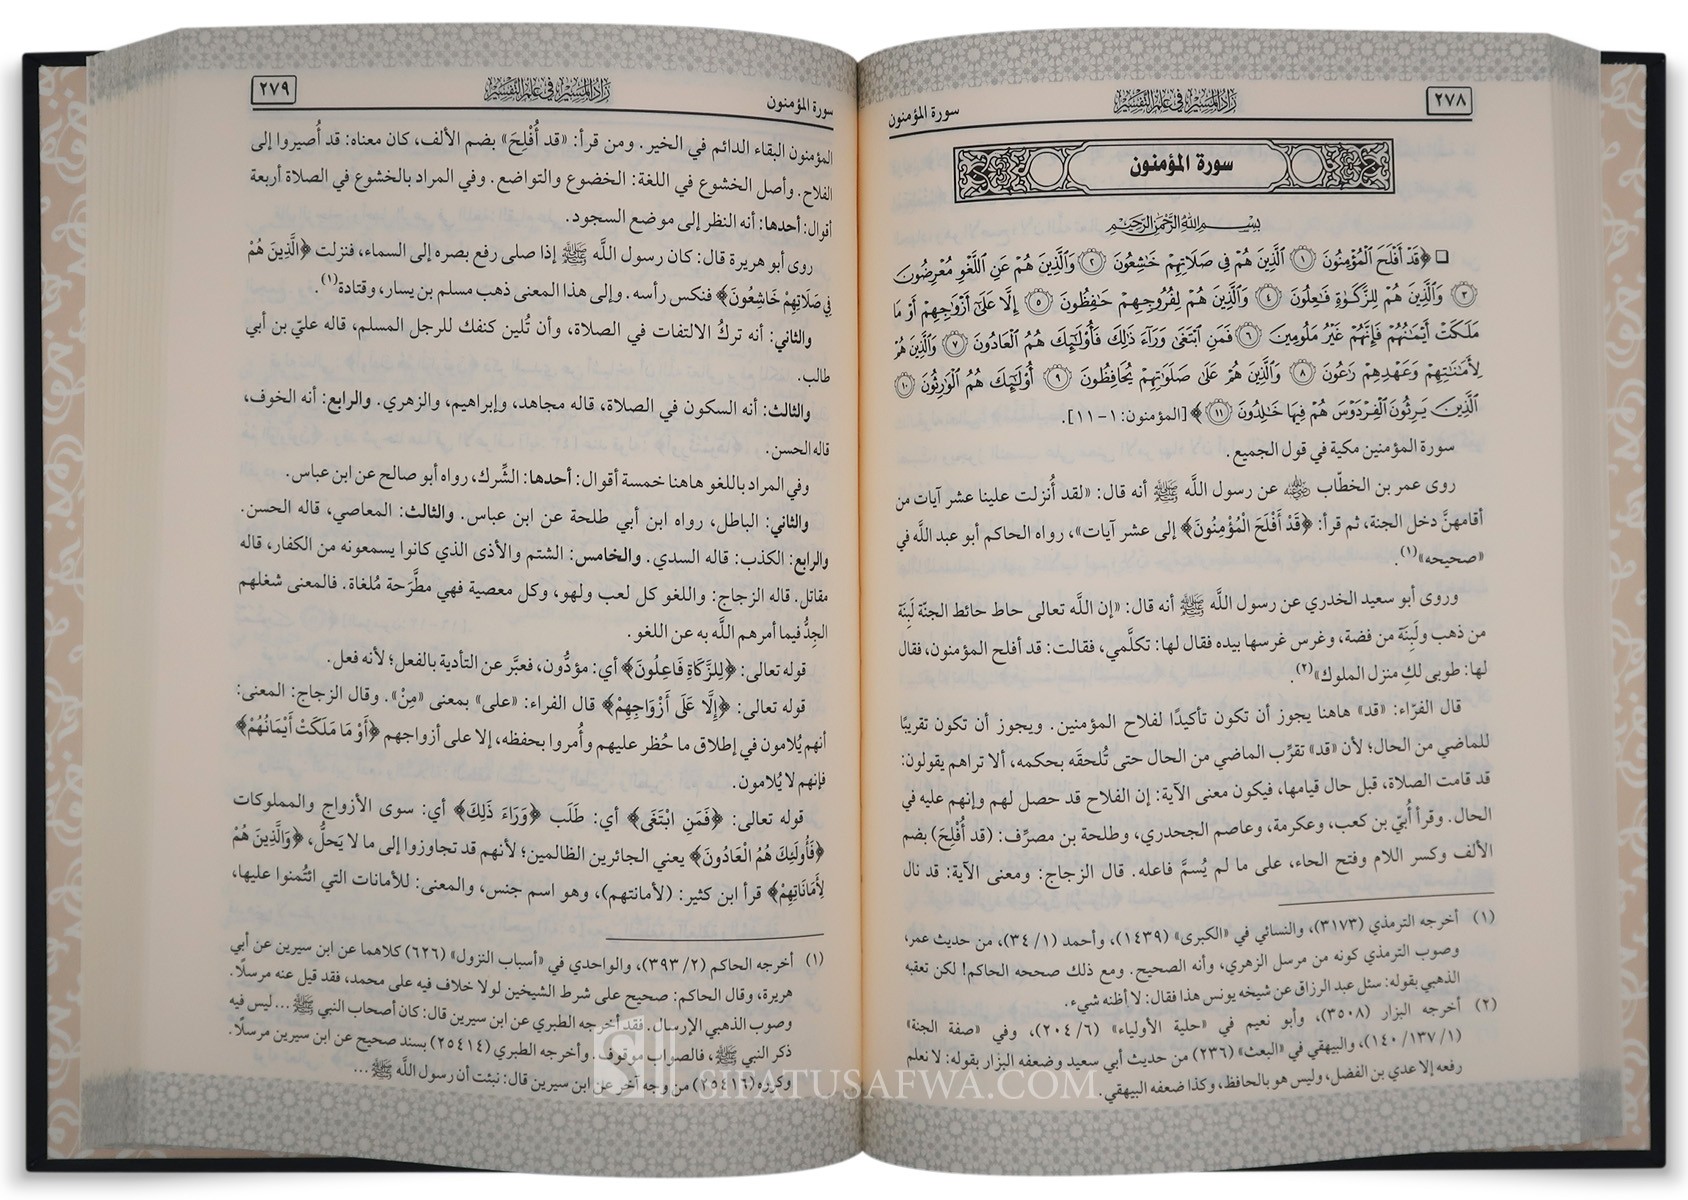 ٢٧٨
زاد المسير في علم التفسير
سورة المؤمنون
سورة المؤمنون
بسم الله الرحمن الرحيم
❑ ﴿قَدْ أَفْلَحَ الْمُؤْمِنُونَ ١ الَّذِينَ هُمْ فِي صَلَاتِهِمْ خَاشِعُونَ ٢ وَالَّذِينَ هُمْ عَنِ اللَّغْوِ مُعْرِضُونَ
٣ وَالَّذِينَ هُمْ لِلزَّكَاةِ فَاعِلُونَ ٤ وَالَّذِينَ هُمْ لِفُرُوجِهِمْ حَافِظُونَ ٥ إِلَّا عَلَىٰ أَزْوَاجِهِمْ أَوْ مَا
مَلَكَتْ أَيْمَانُهُمْ فَإِنَّهُمْ غَيْرُ مَلُومِينَ ٦ فَمَنِ ابْتَغَىٰ وَرَاءَ ذَٰلِكَ فَأُولَٰئِكَ هُمُ الْعَادُونَ ٧ وَالَّذِينَ هُمْ
لِأَمَانَاتِهِمْ وَعَهْدِهِمْ رَاعُونَ ٨ وَالَّذِينَ هُمْ عَلَىٰ صَلَوَاتِهِمْ يُحَافِظُونَ ٩ أُولَٰئِكَ هُمُ الْوَارِثُونَ ١٠
الَّذِينَ يَرِثُونَ الْفِرْدَوْسَ هُمْ فِيهَا خَالِدُونَ ١١﴾ [المؤمنون: ١-١١].
سورة المؤمنين مكية في قول الجميع.
روى عمر بن الخطّاب رضي الله عنه عن رسول اللَّه ﷺ أنه قال: «لقد أُنزلت علينا عشر آيات من
أقامهنَّ دخل الجنة، ثم قرأ: ﴿قَدْ أَفْلَحَ الْمُؤْمِنُونَ﴾ إلى عشر آيات»، رواه الحاكم أبو عبد اللَّه في
«صحيحه»(١).
وروى أبو سعيد الخدري عن رسول اللَّه ﷺ أنه قال: «إن اللَّه تعالى حاط حائط الجنّة لَبِنَة
من ذهب ولَبِنَة من فضة، وغرس غرسها بيده فقال لها: تكلَّمي، فقالت: قد أفلح المؤمنون، فقال
لها: طوبى لكِ منزل الملوك»(٢).
قال الفرّاء: «قد» هاهنا يجوز أن تكون تأكيدًا لفلاح المؤمنين. ويجوز أن تكون تقريبًا
للماضي من الحال؛ لأن «قد» تقرِّب الماضي من الحال حتى تُلحقَه بحكمه، ألا تراهم يقولون:
قد قامت الصلاة، قبل حال قيامها، فيكون معنى الآية: إن الفلاح قد حصل لهم وإنهم عليه في
الحال. وقرأ أُبيّ بن كعب، وعكرمة، وعاصم الجحدري، وطلحة بن مصرِّف: (قد أُفْلِحَ) بضم
الألف وكسر اللام وفتح الحاء، على ما لم يُسمَّ فاعله. قال الزجاج: ومعنى الآية: قد نال
(١) أخرجه الترمذي (٣١٧٣)، والنسائي في «الكبرى» (١٤٣٩)، وأحمد (١/ ٣٤)، من حديث عمر،
وصوب الترمذي كونه من مرسل الزهري، وأنه الصحيح. ومع ذلك صححه الحاكم! لكن تعقبه
الذهبي بقوله: سئل عبد الرزاق عن شيخه يونس هذا فقال: لا أظنه شيء.
(٢) أخرجه البزار (٣٥٠٨)، وأبو نعيم في «حلية الأولياء» (٦/ ٢٠٤)، وفي «صفة الجنة»
(١/ ١٣٧/ ١٤٠)، والبيهقي في «البعث» (٢٣٦) من حديث أبي سعيد وضعفه البزار بقوله: لا نعلم
رفعه إلا عدي بن الفضل، وليس هو بالحافظ، وكذا ضعفه البيهقي.
سورة المؤمنون
زاد المسير في علم التفسير
٢٧٩
المؤمنون البقاء الدائم في الخير. ومن قرأ: «قد أُفْلِحَ» بضم الألف، كان معناه: قد أُصيروا إلى
الفلاح. وأصل الخشوع في اللغة: الخضوع والتواضع. وفي المراد بالخشوع في الصلاة أربعة
أقوال: أحدها: أنه النظر إلى موضع السجود.
روى أبو هريرة قال: كان رسول اللَّه ﷺ إذا صلى رفع بصره إلى السماء، فنزلت ﴿الَّذِينَ هُمْ
فِي صَلَاتِهِمْ خَاشِعُونَ﴾ فنكس رأسه. وإلى هذا المعنى ذهب مسلم بن يسار، وقتادة(١).
والثاني: أنه تركُ الالتفات في الصلاة، وأن تُلين كنفك للرجل المسلم، قاله عليّ بن أبي
طالب.
والثالث: أنه السكون في الصلاة، قاله مجاهد، وإبراهيم، والزهري. والرابع: أنه الخوف،
قاله الحسن.
وفي المراد باللغو هاهنا خمسة أقوال: أحدها: الشِّرك، رواه أبو صالح عن ابن عباس.
والثاني: الباطل، رواه ابن أبي طلحة عن ابن عباس. والثالث: المعاصي، قاله الحسن.
والرابع: الكذب: قاله السدي. والخامس: الشتم والأذى الذي كانوا يسمعونه من الكفار، قاله
مقاتل. قاله الزجاج: واللغو كل لعب ولهو، وكل معصية فهي مطَّرَحة مُلغاة. فالمعنى شغلهم
الجِدُّ فيما أمرهم اللَّه به عن اللغو.
قوله تعالى: ﴿لِلزَّكَاةِ فَاعِلُونَ﴾ أي: مؤدُّون، فعبَّر عن التأدية بالفعل؛ لأنه فعل.
قوله تعالى: ﴿إِلَّا عَلَى أَزْوَاجِهِمْ﴾ قال الفراء: «على» بمعنى «مِنْ». وقال الزجاج: المعنى:
أنهم يُلامون في إطلاق ما حُظر عليهم وأُمروا بحفظه، إلا على أزواجهم ﴿أَوْ مَا مَلَكَتْ أَيْمَانُهُمْ﴾
فإنهم لا يُلامون.
قوله تعالى: ﴿فَمَنِ ابْتَغَى﴾ أي: طَلَب ﴿وَرَاءَ ذَلِكَ﴾ أي: سوى الأزواج والمملوكات
﴿فَأُولَئِكَ هُمُ الْعَادُونَ﴾ يعني الجائرين الظالمين؛ لأنهم قد تجاوزوا إلى ما لا يَحلُّ، ﴿وَالَّذِينَ هُمْ
لِأَمَانَاتِهِمْ﴾ قرأ ابن كثير: (لأمانتهم)، وهو اسم جنس، والمعنى: للأمانات التي ائتُمنوا عليها،
(١) أخرجه الحاكم (٢/ ٣٩٣)، والواحدي في «أسباب النزول» (٦٢٦) كلاهما عن ابن سيرين عن أبي
هريرة، وقال الحاكم: صحيح على شرط الشيخين لولا خلاف فيه على محمد، فقد قيل عنه مرسلًا.
وصوب الذهبي الإرسال. فقد أخرجه الطبري عن ابن سيرين قال: كان أصحاب النبي ﷺ... ليس فيه
ذكر النبي ﷺ، فالصواب موقوف. وأخرجه الطبري (٢٥٤١٤) بسند صحيح عن ابن سيرين مرسلًا.
وكرره (٢٥٤١٦) من وجه آخر عن ابن سيرين قال: نبئت أن رسول اللَّه ﷺ ...
SIFATUSAFWA.COM